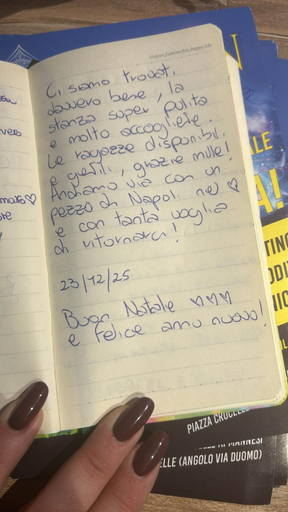 Ci siamo trovati
davvero bene, la
stanza super pulita
e molto accogliente.
Le ragazze disponibili
e gentili, grazie mille!
Andiamo via con un
pezzo di Napoli nel ♡
e con tanta voglia
di ritornarci!
23/12/25
Buon Natale ♡♡♡
e felice anno nuovo!
LLE
A!
PIAZZA
MANNESI
ELLE (ANGOLO VIA DUOMO)